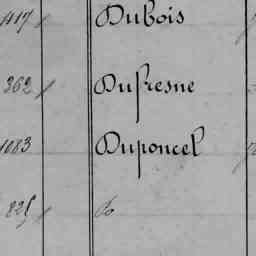 1417 Dubois
362 Dufresne
1083 Duponcel
825 do